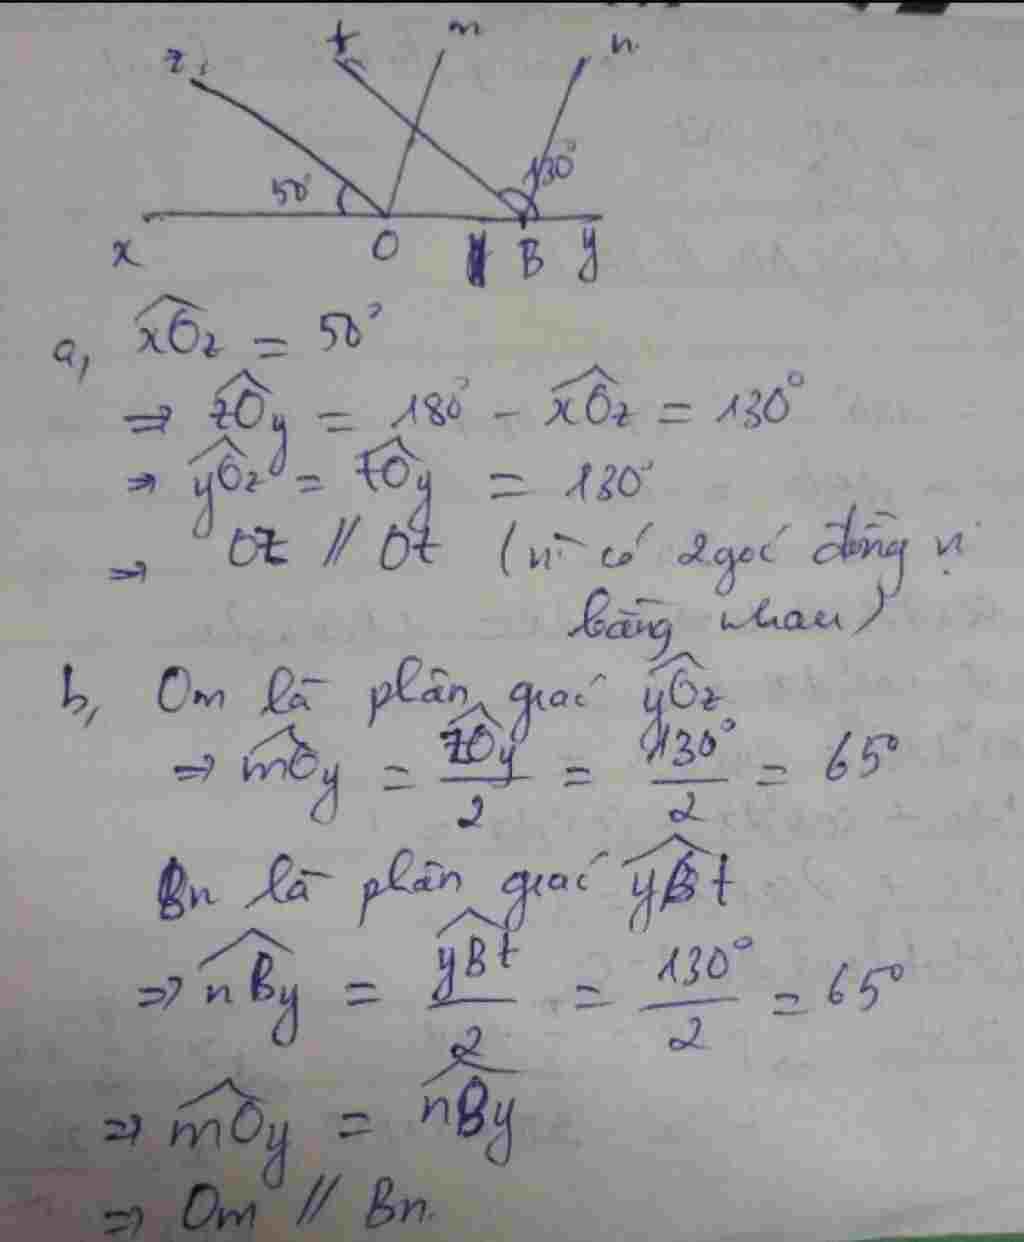 z t m n
50° 130°
x O B y
a, xOz = 50°
⇒ zOy = 180° - xOz = 130°
⇒ yOz = tOy = 130°
⇒ Oz // Ot (vì có 2 góc đồng vị
bằng nhau)
b, Om là phân giác yOz
⇒ mOy = zOy/2 = 130°/2 = 65°
Bn là phân giác yBt
⇒ nBy = yBt/2 = 130°/2 = 65°
⇒ mOy = nBy
⇒ Om // Bn.